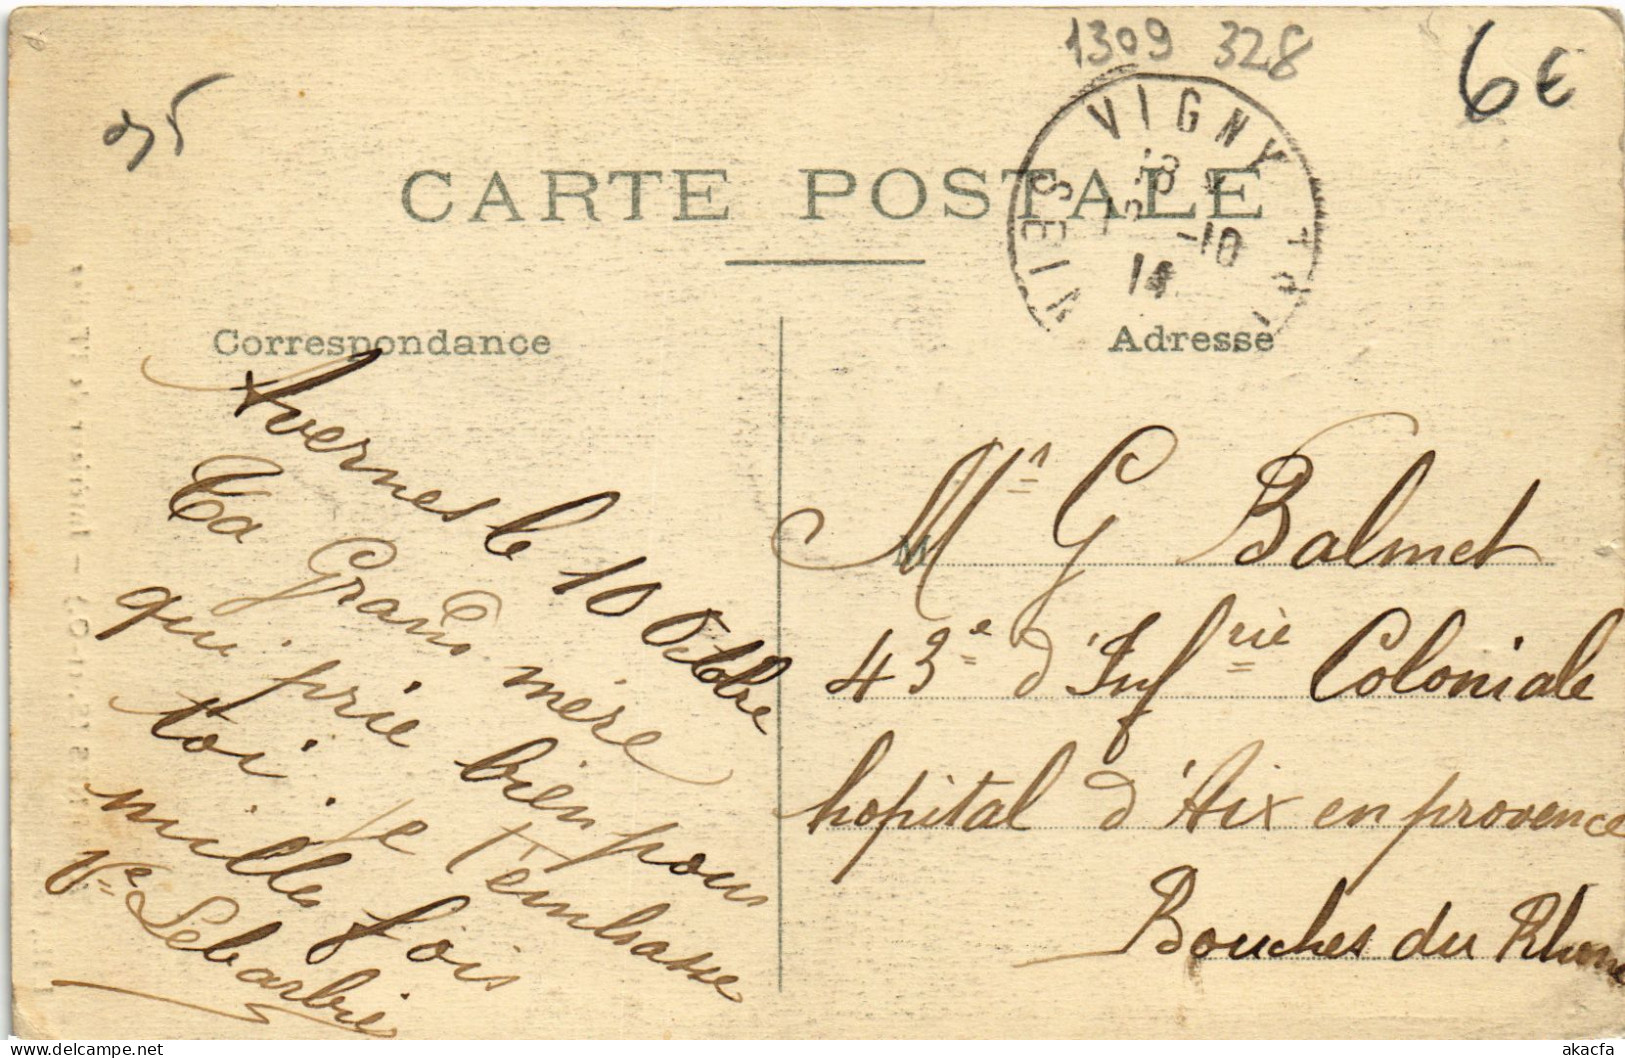 1309 328
6€
VIGNY
18
10
-10
14
CARTE POSTALE
Correspondance
Adresse
Avernes le 10 Octobre
Ta Grand mère
qui prie bien pour
toi. je t'embrasse
mille fois
Vᵉ Lebarbié
Mʳ G Balmet
43ᵉ d'Infʳⁱᵉ Coloniale
hopital d'Aix en provence
Bouches du Rhone
akacfa